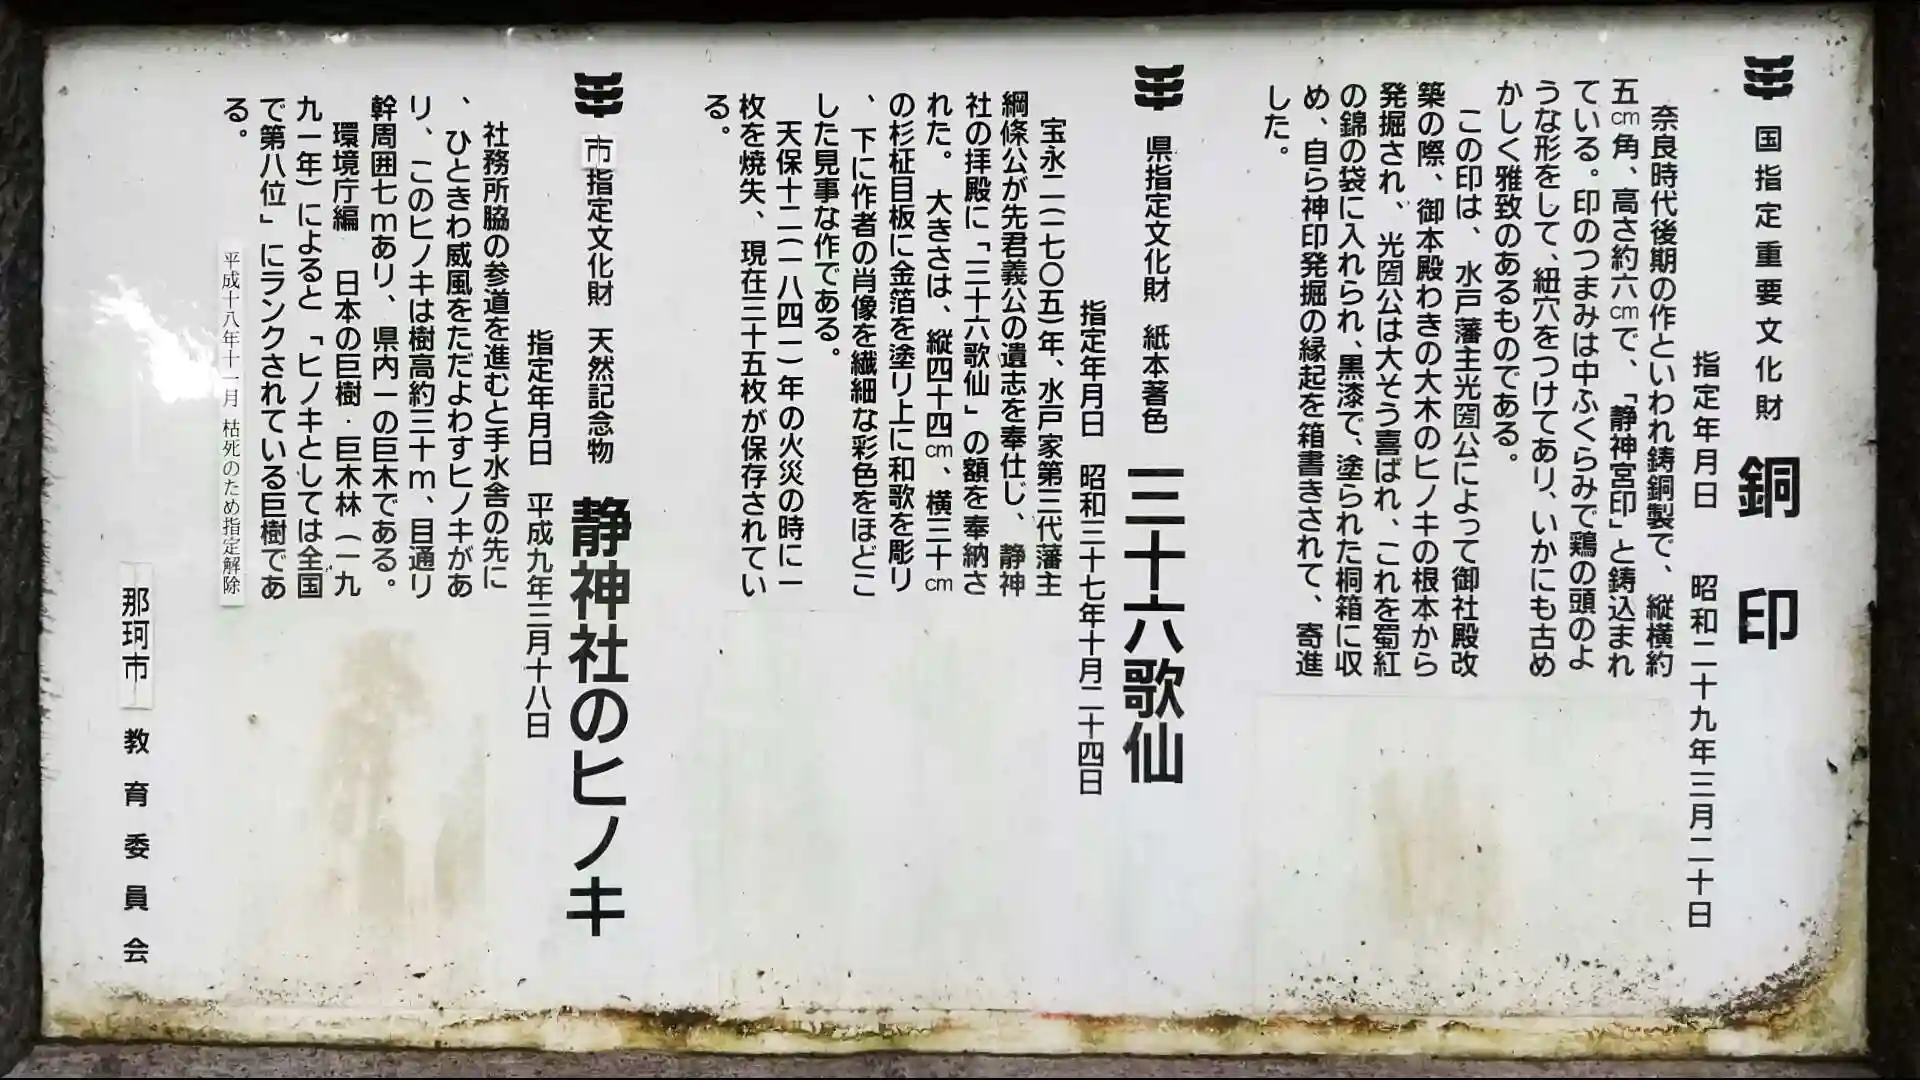 国指定重要文化財 銅印
指定年月日 昭和二十九年三月二十日
奈良時代後期の作といわれ鋳銅製で、縦横約
五㎝角、高さ約六㎝で、「静神宮印」と鋳込まれ
ている。印のつまみは中ふくらみで鶏の頭のよ
うな形をして、紐穴をつけてあり、いかにも古め
かしく雅致のあるものである。
この印は、水戸藩主光圀公によって御社殿改
築の際、御本殿わきの大木のヒノキの根本から
発掘され、光圀公は大そう喜ばれ、これを蜀紅
の錦の袋に入れられ、黒漆で、塗られた桐箱に収
め、自ら神印発掘の縁起を箱書きされて、寄進
した。
県指定文化財 紙本著色 三十六歌仙
指定年月日 昭和三十七年十月二十四日
宝永二(一七〇五)年、水戸家第三代藩主
綱條公が先君義公の遺志を奉仕し、静神
社の拝殿に「三十六歌仙」の額を奉納さ
れた。大きさは、縦四十四㎝、横三十㎝
の杉柾目板に金箔を塗り上に和歌を彫り
、下に作者の肖像を繊細な彩色をほどこ
した見事な作である。
天保十二(一八四一)年の火災の時に一
枚を焼失、現在三十五枚が保存されてい
る。
市指定文化財 天然記念物 静神社のヒノキ
指定年月日 平成九年三月十八日
社務所脇の参道を進むと手水舎の先に
、ひときわ威風をただよわすヒノキがあ
り、このヒノキは樹高約三十m、目通り
幹周囲七mあり、県内一の巨木である。
環境庁編 日本の巨樹・巨木林(一九
九一年)によると「ヒノキとしては全国
で第八位」にランクされている巨樹であ
る。
平成十八年十一月 枯死のため指定解除
那珂市教育委員会